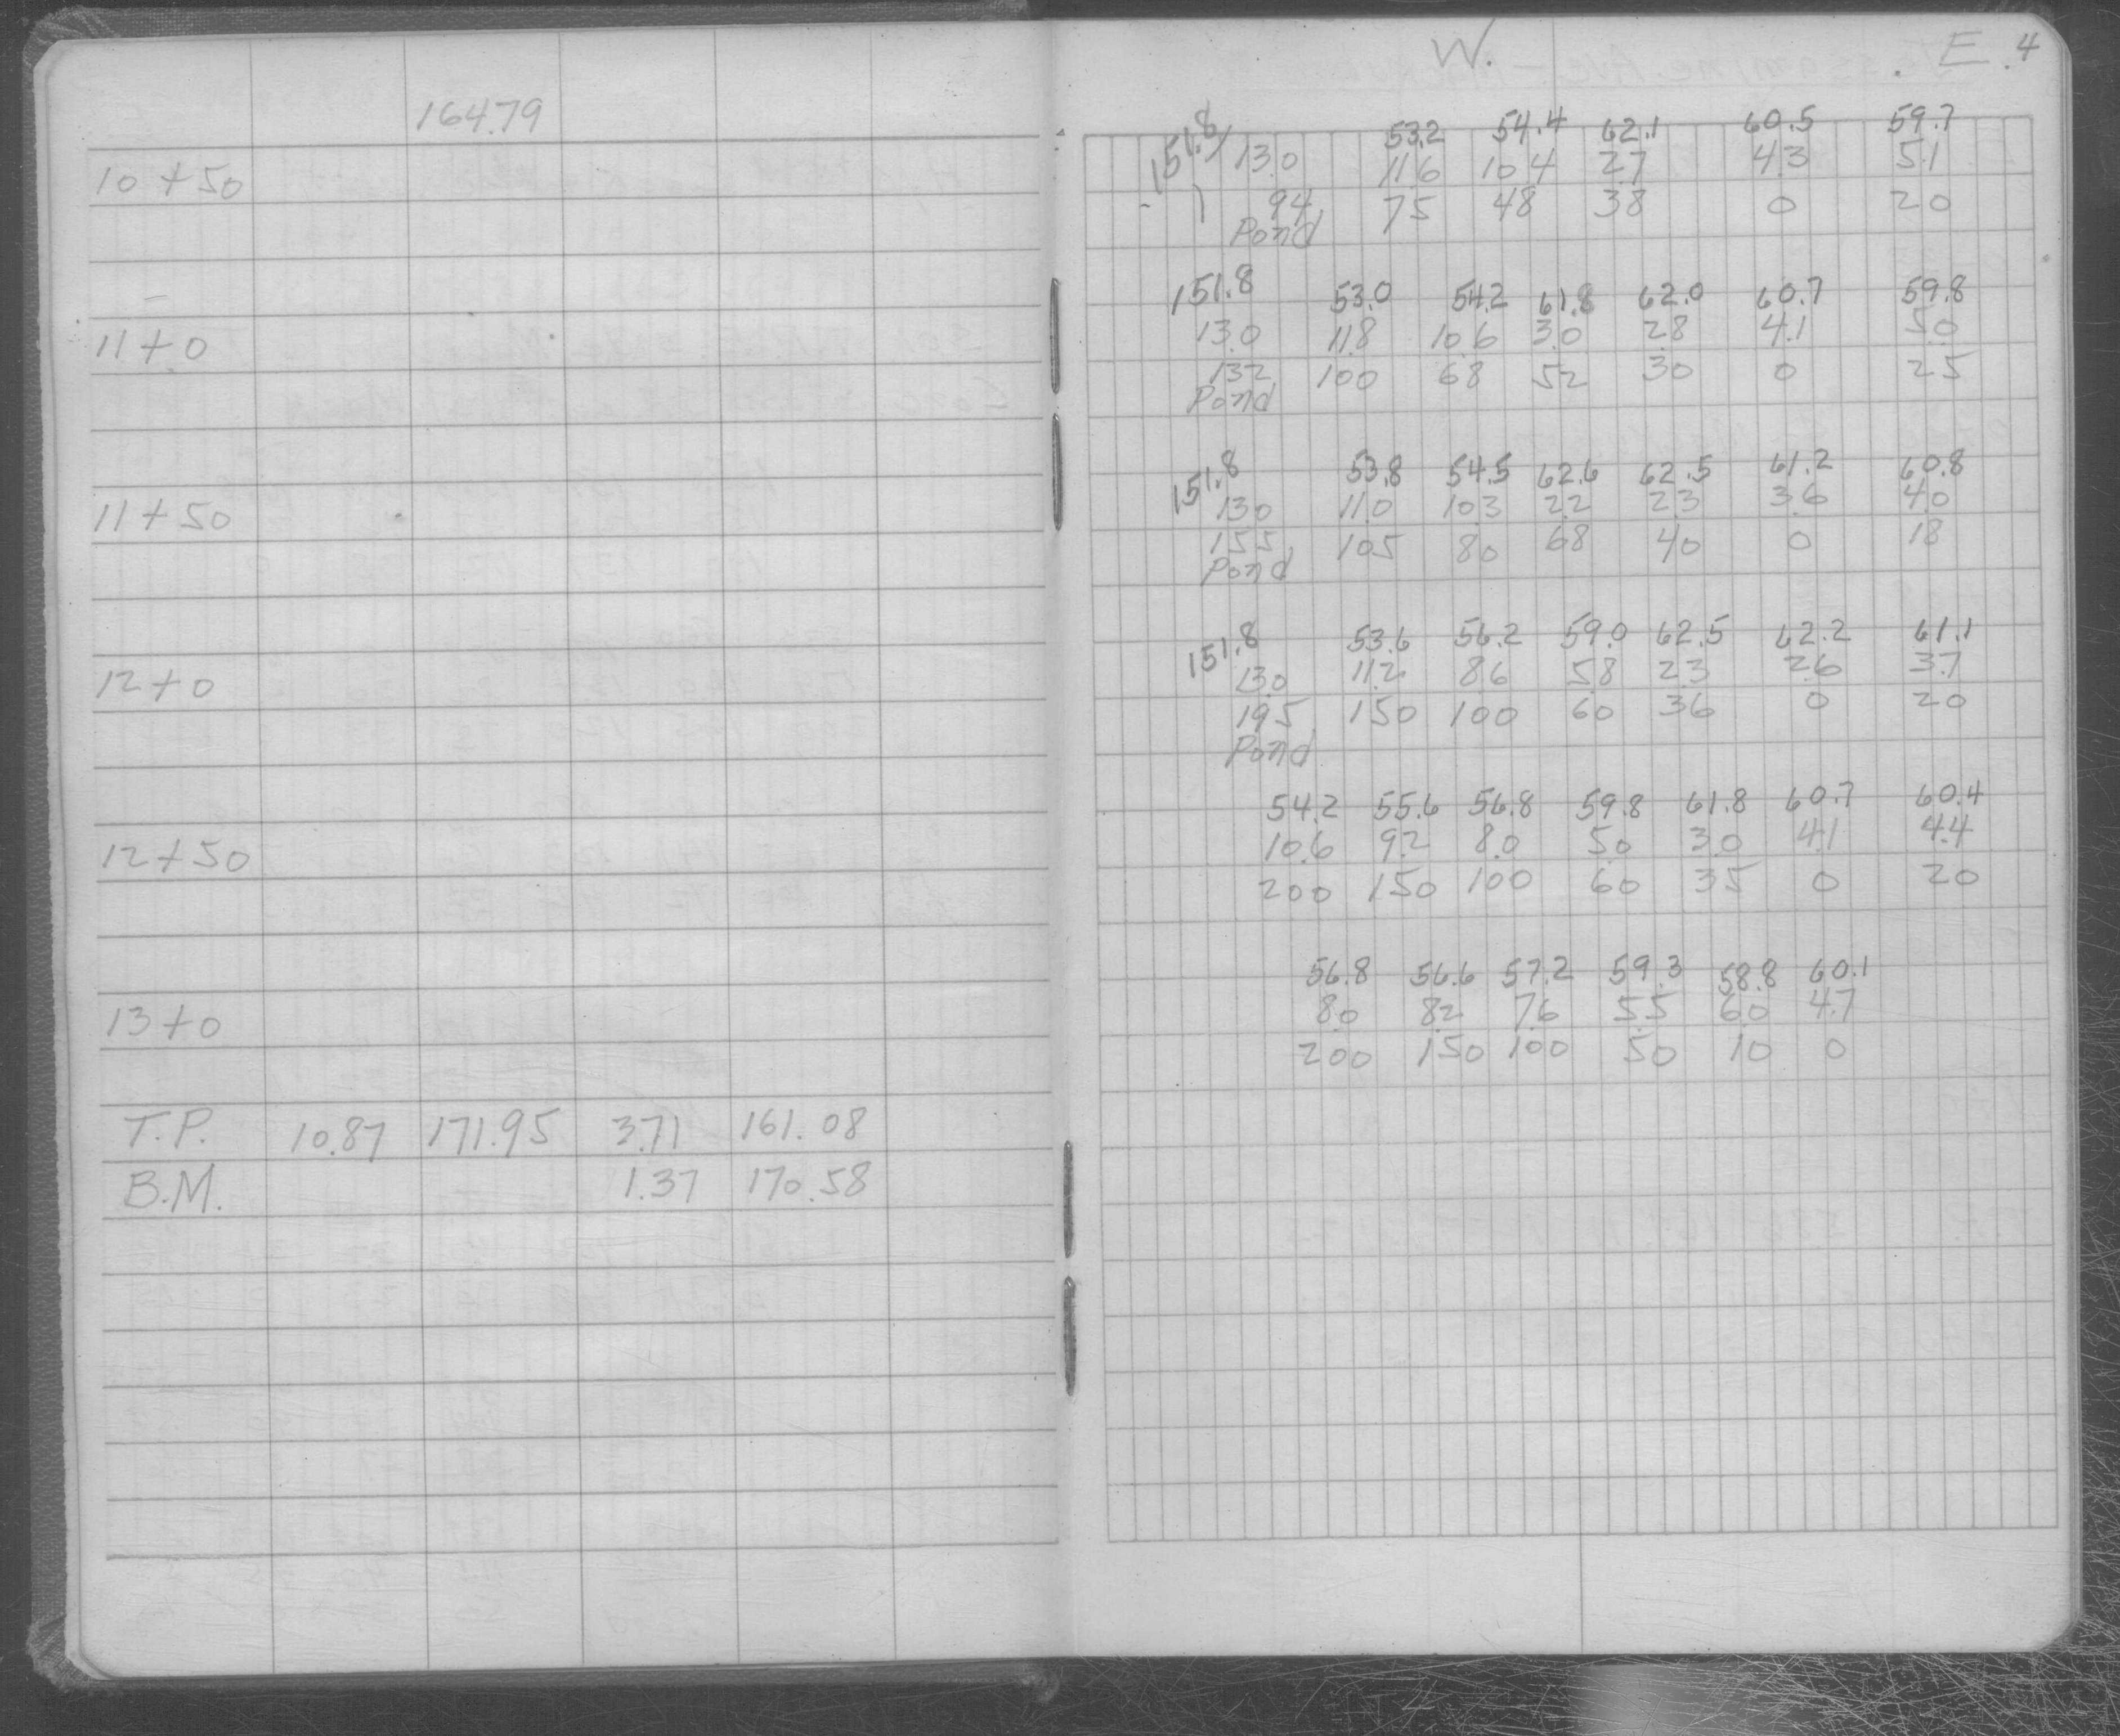 164.79
10+50
11+0
11+50
12+0
12+50
13+0
T.P. 10.87 171.95 3.71 161.08
B.M. 1.37 170.58
W. E. 4
151.8 53.2 54.4 62.1 60.5 59.7
13.0 11.6 10.4 2.7 4.3 5.1
94 75 48 38 0 20
Pond
151.8 53.0 54.2 61.8 62.0 60.7 59.8
13.0 11.8 10.6 3.0 2.8 4.1 5.0
132 100 68 52 30 0 25
Pond
151.8 53.8 54.5 62.6 62.5 61.2 60.8
13.0 11.0 10.3 2.2 2.3 3.6 4.0
155 105 80 68 40 0 18
Pond
151.8 53.6 56.2 59.0 62.5 62.2 61.1
13.0 11.2 8.6 5.8 2.3 2.6 3.7
195 150 100 60 36 0 20
Pond
54.2 55.6 56.8 59.8 61.8 60.7 60.4
10.6 9.2 8.0 5.0 3.0 4.1 4.4
200 150 100 60 35 0 20
56.8 56.6 57.2 59.3 58.8 60.1
8.0 8.2 7.6 5.5 6.0 4.7
200 150 100 50 10 0